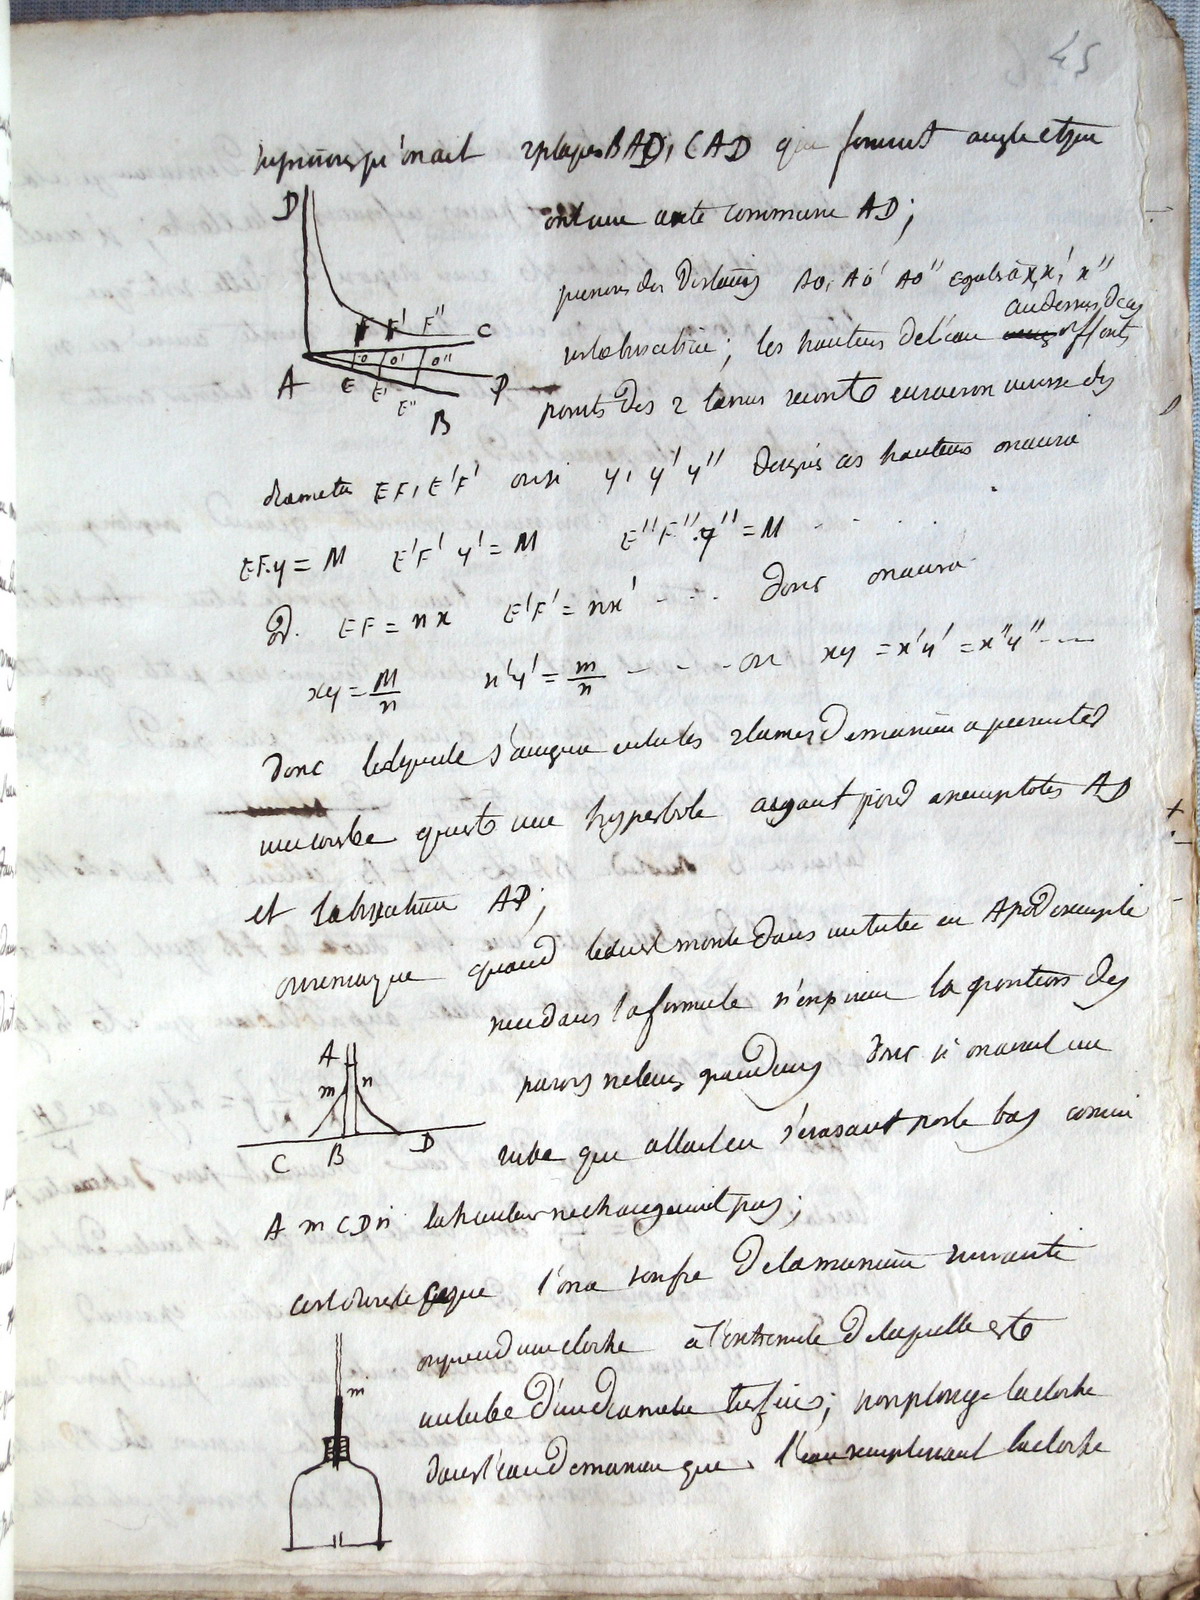 45
Supposons qu'on ait 2 plaques BAD, CAD qui forment angle et que
ont une arete commune AD;
prenons des distances Ao, Ao' Ao'' egales à x, x', x''
D
F F' F'' C
o o' o''
A E E' E'' B P
sur la bissectrice; les hauteurs de l'eau au dessus de ces
points des 2 lames seront en raison inverse des
diametres EF, E'F' on si y, y' y'' designe ces hauteurs on aura
EF.y = M E'F' y' = M E''F''.y'' = M
Or. EF = nx E'F' = nx' - - - donc on aura
xy = M/n x'y' = m/n - - - on xy = x'y' = x''y'' - - -
donc le liquide s'arrange entre les 2 lames de maniere a presenter
une courbe qui est une hyperbole ayant pour asymptotes AD
et la bissectrice AP;
on remarque quand le liquide monte dans un tube en A par exemple
rien dans la formule n'exprime la position des
parois ni leur grandeur, donc si on avait un
A
m n
C B D
tube qui allait en s'evasant par le bas comme
A m C D n la hauteur ne changerait pas;
c'est ce que l'on de la maniere suivante
on prend une cloche à l'extremité de laquelle est
m
un tube d'un diametre tres fin; on plonge la cloche
dans l'eau de maniere que l'eau remplissant la cloche